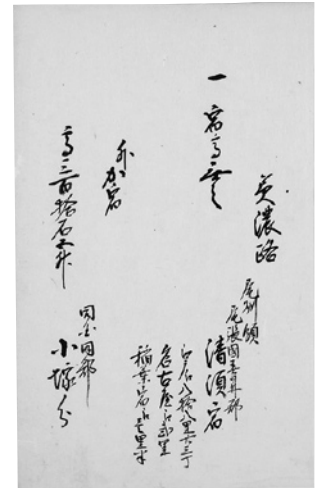 美濃路
尾州領
尾張国春日井郡
清須宿
江戸八拾八里六丁
名古屋江弐里
稲葉宿江壱里半
一 宿高無之
外加宿
高三百拾石五升
同国同郡
小塚分